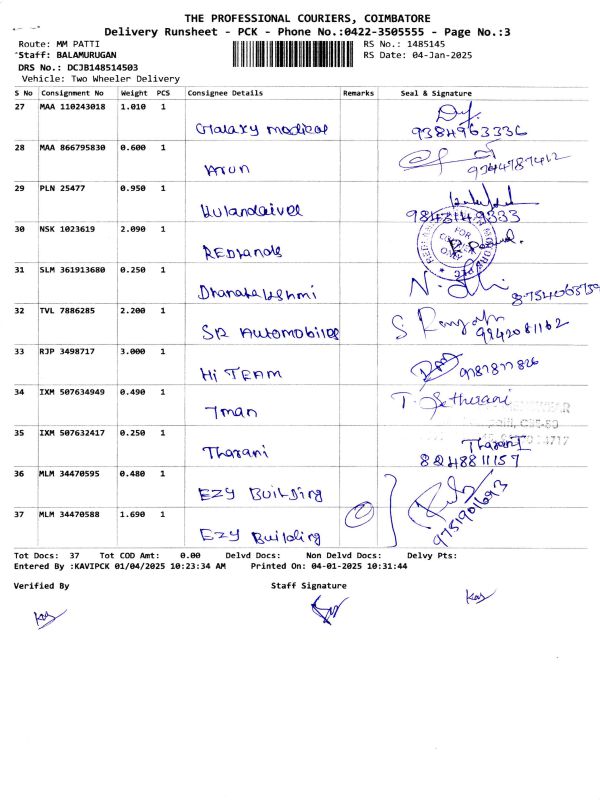 THE PROFESSIONAL COURIERS, COIMBATORE
Delivery Runsheet - PCK - Phone No.:0422-3505555 - Page No.:3
Route: MM PATTI RS No.: 1485145
Staff: BALAMURUGAN RS Date: 04-Jan-2025
DRS No.: DCJB148514503
Vehicle: Two Wheeler Delivery
S No Consignment No Weight PCS Consignee Details Remarks Seal & Signature
27 MAA 110243018 1.010 1
Galaxy medical 9384963336
28 MAA 866795830 0.600 1
Arun 9244787412
29 PLN 25477 0.950 1
Kulandaivel 9843149333
30 NSK 1023619 2.090 1
REDlands
FOR COURIER ONLY
31 SLM 361913680 0.250 1
Dhanalakshmi
32 TVL 7886285 2.200 1
SR Automobiles 9842081162
33 RJP 3498717 3.000 1
Hi TEAM 9787877826
34 IXM 507634949 0.490 1
7man T. Jetherani
35 IXM 507632417 0.250 1
Tharani Tharani
8248811157
36 MLM 34470595 0.480 1
EZY Building
37 MLM 34470588 1.690 1
EZY Building 9751901693
Tot Docs: 37 Tot COD Amt: 0.00 Delvd Docs: Non Delvd Docs: Delvy Pts:
Entered By :KAVIPCK 01/04/2025 10:23:34 AM Printed On: 04-01-2025 10:31:44
Verified By Staff Signature